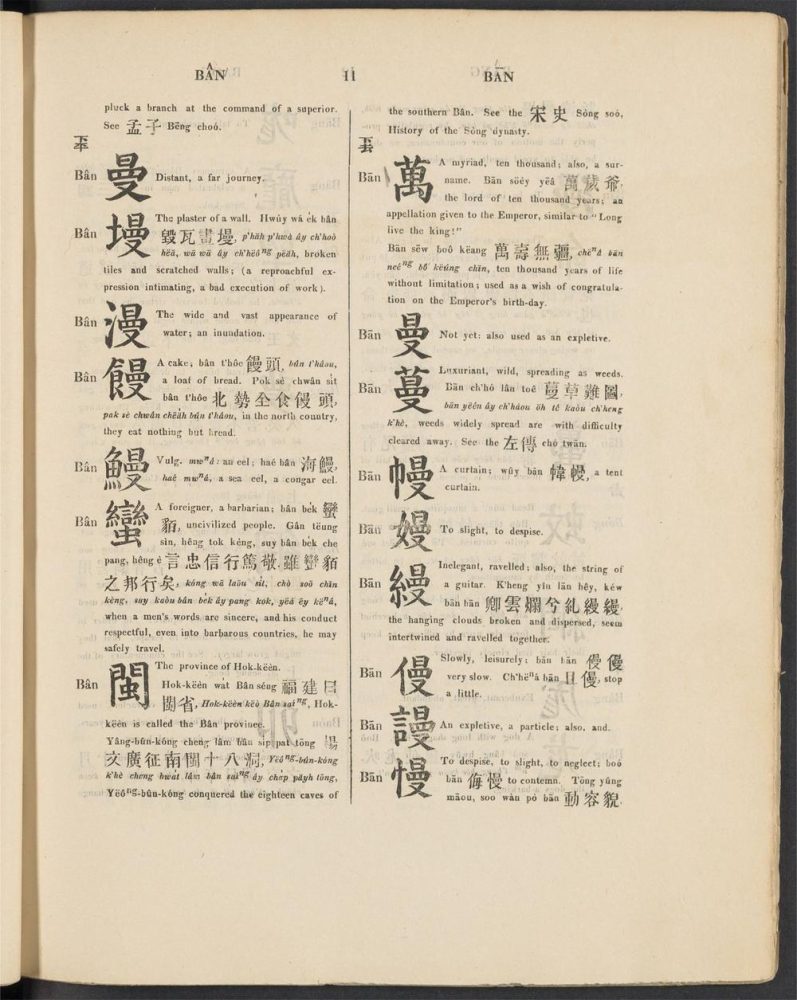 BÂN 11 BĀN
pluck a branch at the command of a superior.
See 孟子 Bēng choó.
下平
Bân 曼 Distant, a far journey.
Bân 墁 The plaster of a wall. Hwúy wá èk bân
毀瓦畫墁, p'hăh p'hwà áy ch'hoò
hēā, wā wā ây ch'hëôⁿᵍ peăh, broken
tiles and scratched walls; (a reproachful ex-
pression intimating, a bad execution of work).
Bân 漫 The wide and vast appearance of
water; an inundation.
Bân 饅 A cake; bân t'hôe 饅頭, bán t'háou,
a loaf of bread. Pok sè chwân sit
bân t'hôe 北勢全食饅頭,
pak sè chwân chëăh bún t'hâou, in the north country,
they eat nothing but bread.
Bân 鰻 Vulg. mwⁿâ: an eel; haé bân 海鰻,
haé mwⁿâ, a sea eel, a congar eel.
Bân 蠻 A foreigner, a barbarian; bân bek 蠻
貊, uncivilized people. Gân tëung
sin, hêng tok kèng, suy bân bek che
pang, hêng é 言忠信行篤敬雖蠻貊
之邦行矣, kóng wā laōu sít, chò soō chin
kèng, suy kaòu bân bek ây pang kok, yëá ēy këⁿâ,
when a men's words are sincere, and his conduct
respectful, even into barbarous countries, he may
safely travel.
Bân 閩 The province of Hok-këèn.
Hok-këèn wat Bân séng 福建曰
閩省, Hok-këèn kèò Bân saiⁿᵍ, Hok-
këèn is called the Bân province.
Yâng-bûn-kóng cheng lâm Bân sip pat tōng 楊
文廣征南閩十八洞, Yëôⁿᵍ-bûn-kóng
k'hè cheng hwat lâm bân saiⁿᵍ áy chap páyh tōng,
Yëôⁿᵍ-bûn-kóng conquered the eighteen caves of
the southern Bân. See the 宋史 Sòng soó,
History of the Sòng dynasty.
下去
Bān 萬 A myriad, ten thousand; also, a sur-
name. Bān söèy yêâ 萬歲爺,
the lord of ten thousand years; an
appellation given to the Emperor, similar to "Long
live the king!"
Bān sēw boô këang 萬壽無疆, chëⁿá bān
neêⁿᵍ bô këúng chīn, ten thousand years of life
without limitation; used as a wish of congratula-
tion on the Emperor's birth-day.
Bān 曼 Not yet: also used as an expletive.
Bān 蔓 Luxuriant, wild, spreading as weeds.
Bān ch'hó lân toê 蔓草難圖,
bān yëên áy ch'háou öh tê kaòu ch'heng
k'hè, weeds widely spread are with difficulty
cleared away. See the 左傳 chó twān.
Bān 幔 A curtain; wûy bān 幃幔, a tent
curtain.
Bān 嫚 To slight, to despise.
Bān 縵 Inelegant, ravelled; also, the string of
a guitar. K'heng yîn lān hêy, kéw
bān bān 卿雲爛兮糺縵縵,
the hanging clouds broken and dispersed, seem
intertwined and ravelled together.
Bān 優 Slowly, leisurely; bān bān 優優
very slow. Ch'hëⁿá bān 且優, stop
a little.
Bān 謾 An expletive, a particle; also, and.
Bān 慢 To despise, to slight, to neglect; boó
bān 侮慢 to contemn. Tōng yûng
māou, soo wán pó bān 動容貌,